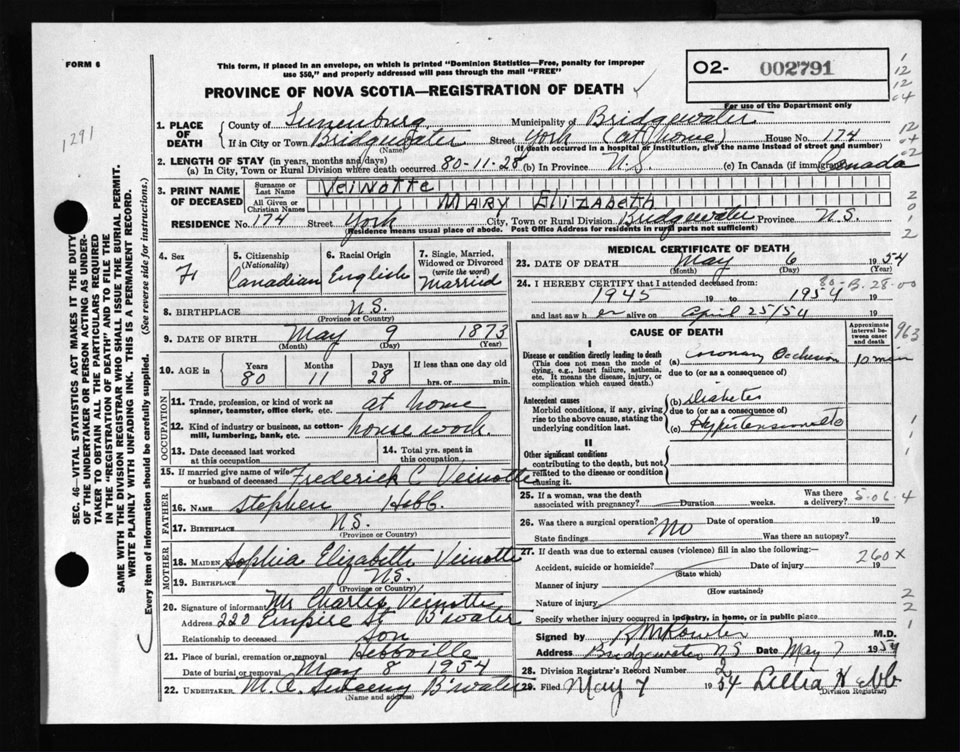 FORM 6
This form, if placed in an envelope, on which is printed "Dominion Statistics—Free, penalty for improper
use $50," and properly addressed will pass through the mail "FREE"
PROVINCE OF NOVA SCOTIA—REGISTRATION OF DEATH
O2- 002791
For use of the Department only
1
12
12
04
12
04
02
2
0
1
2
291
1. PLACE OF DEATH
County of Lunenburg Municipality of Bridgewater
If in City or Town Bridgewater Street York (at home) House No. 174
(Name) (If death occurred in a hospital or institution, give the name instead of street and number)
2. LENGTH OF STAY (in years, months and days)
(a) In City, Town or Rural Division where death occurred 80-11-28 (b) In Province N.S. (c) In Canada (if immigrant) Canada
3. PRINT NAME OF DECEASED
Surname or Last Name Veinotte
All Given or Christian Names Mary Elizabeth
RESIDENCE No. 174 Street York City, Town or Rural Division Bridgewater Province N.S.
(Residence means usual place of abode. Post Office Address for residents in rural parts not sufficient)
4. Sex F.
5. Citizenship (Nationality) Canadian
6. Racial Origin English
7. Single, Married, Widowed or Divorced (write the word) Married
8. BIRTHPLACE N.S.
(Province or Country)
9. DATE OF BIRTH May 9 1873
(Month) (Day) (Year)
10. AGE in Years 80 Months 11 Days 28 If less than one day old hrs. or min.
OCCUPATION
11. Trade, profession, or kind of work as spinner, teamster, office clerk, etc. at home
12. Kind of industry or business, as cotton-mill, lumbering, bank, etc. house work
13. Date deceased last worked at this occupation
14. Total yrs. spent in this occupation
15. If married give name of wife or husband of deceased Frederick C Veinotte
FATHER
16. Name Stephen Hebb.
17. Birthplace N.S.
(Province or Country)
MOTHER
18. Maiden Sophia Elizabeth Veinotte
19. Birthplace N.S.
(Province or Country)
20. Signature of informant Mr Charles Veinotte
Address 220 Empire St B'water
Relationship to deceased Son
21. Place of burial, cremation or removal Hebbville
Date of burial or removal May 8 1954
22. UNDERTAKER M. A. Sweeny B'water
(Name and address)
MEDICAL CERTIFICATE OF DEATH
23. DATE OF DEATH May 6 1954
(Month) (Day) (Year)
24. I HEREBY CERTIFY that I attended deceased from: 80-B.28-00
1945 19 to 1954 19
and last saw her alive on April 25/54 19
CAUSE OF DEATH
Approximate interval between onset and death
963
I
Disease or condition directly leading to death
(This does not mean the mode of dying, e.g., heart failure, asthenia, etc. It means the disease, injury, or complication which caused death.)
(a) Coronary Occlusion 10 min
due to (or as a consequence of)
Antecedent causes
Morbid conditions, if any, giving rise to the above cause, stating the underlying condition last.
(b) Diabetes
due to (or as a consequence of)
(c)
1
1
1
II
Other significant conditions
contributing to the death, but not related to the disease or condition causing it.
25. If a woman, was the death associated with pregnancy? Duration weeks. Was there a delivery? 5-06.4
26. Was there a surgical operation? No Date of operation 19
State findings Was there an autopsy?
27. If death was due to external causes (violence) fill in also the following:—
260X
Accident, suicide or homicide? Date of injury 19
(State which)
Manner of injury
(How sustained)
Nature of injury
Specify whether injury occurred in industry, in home, or in public place
2
2
1
Signed by M.D.
Address Bridgewater NS Date May 7 1954
28. Division Registrar's Record Number
29. Filed May 7 1954 Lellia H Hebb
(Division Registrar)
SEC. 46—VITAL STATISTICS ACT MAKES IT THE DUTY
OF THE UNDERTAKER OR PERSON ACTING AS UNDER-
TAKER TO OBTAIN ALL THE PARTICULARS REQUIRED
IN THE "REGISTRATION OF DEATH" AND TO FILE THE
SAME WITH THE DIVISION REGISTRAR WHO SHALL ISSUE THE BURIAL PERMIT.
WRITE PLAINLY WITH UNFADING INK. THIS IS A PERMANENT RECORD.
Every item of information should be carefully supplied. (See reverse side for instructions.)